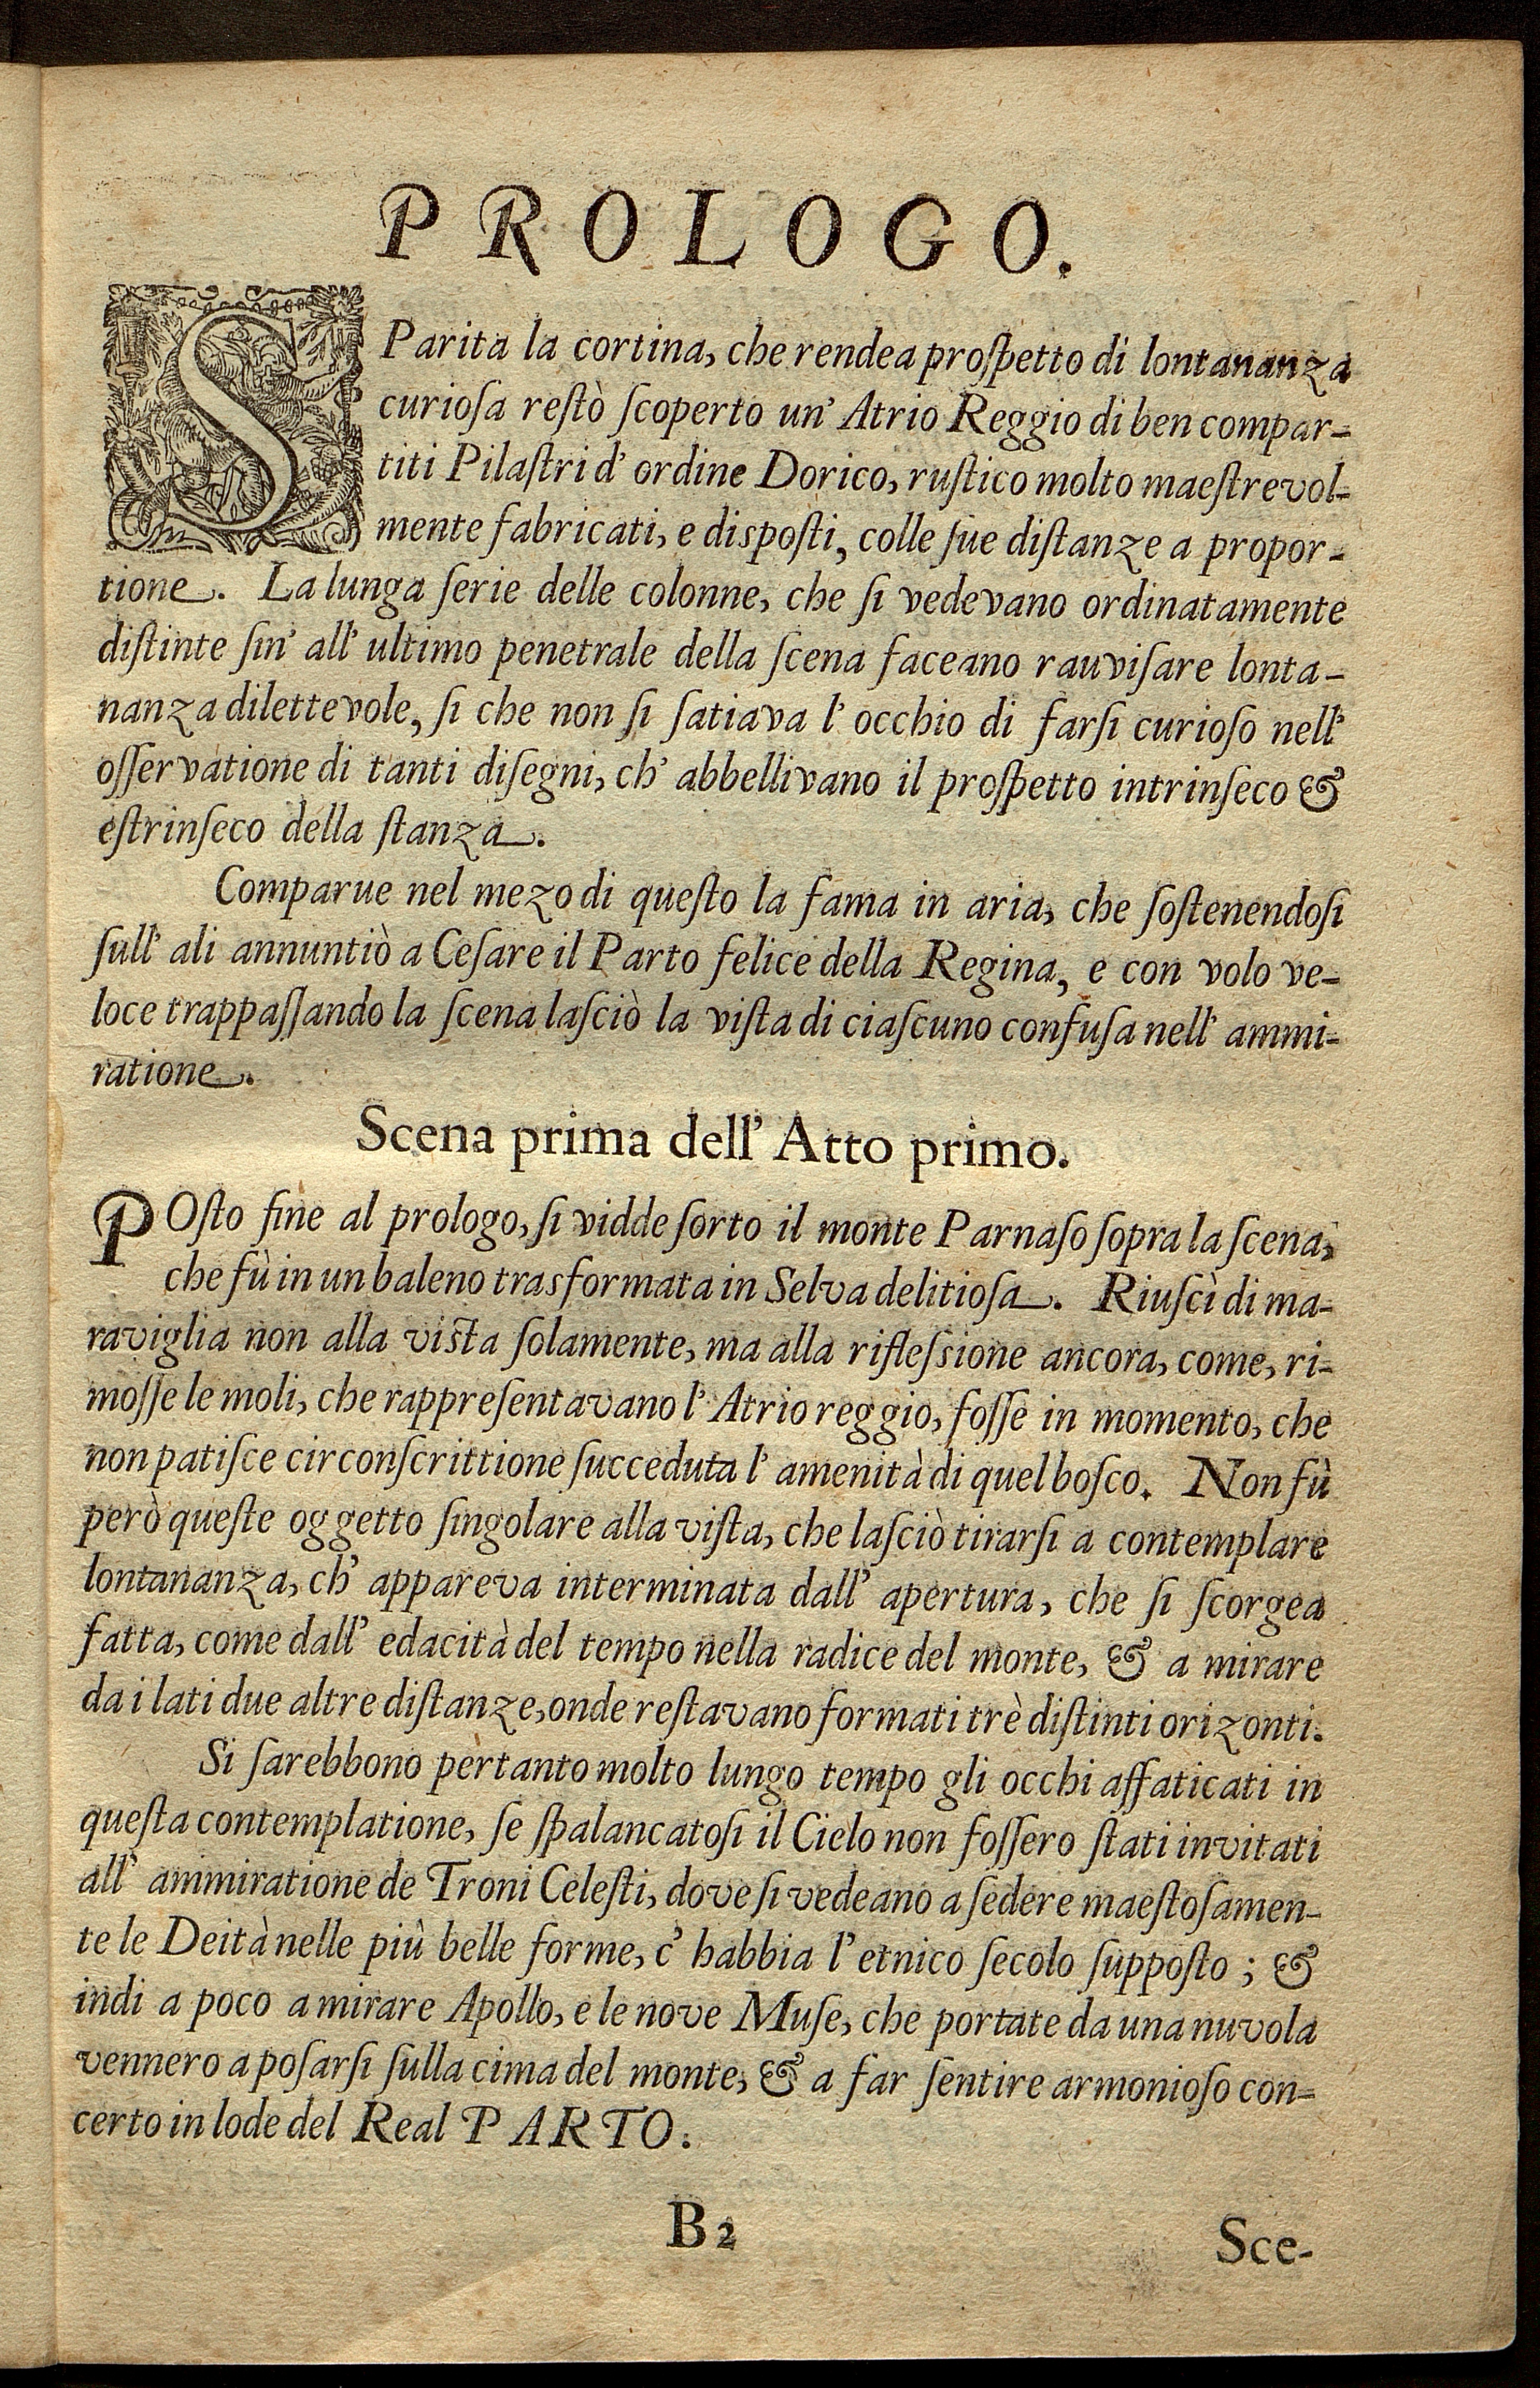 PROLOGO.
SParita la cortina, che rendea proſpetto di lontananza
curioſa reſtò ſcoperto un' Atrio Reggio di ben compar-
titi Pilaſtri d' ordine Dorico, ruſtico molto maeſtrevol-
mente fabricati, e diſpoſti, colle ſue diſtanze a propor-
tione. La lunga ſerie delle colonne, che ſi vedevano ordinatamente
diſtinte ſin' all' ultimo penetrale della ſcena faceano rauviſare lonta-
nanza dilettevole, ſi che non ſi ſatiava l' occhio di farſi curioſo nell'
oſſervatione di tanti diſegni, ch' abbellivano il proſpetto intrinſeco &
eſtrinſeco della ſtanza.
Comparue nel mezo di queſto la fama in aria, che ſoſtenendoſi
ſull' ali annuntiò a Ceſare il Parto felice della Regina, e con volo ve-
loce trappaſſando la ſcena laſciò la viſta di ciaſcuno confuſa nell' ammi-
ratione.
Scena prima dell' Atto primo.
POſto fine al prologo, ſi vidde ſorto il monte Parnaſo ſopra la ſcena,
che fù in un baleno trasformata in Selva delitioſa. Riuſcì di ma-
raviglia non alla viſta ſolamente, ma alla rifleſsione ancora, come, ri-
moſſe le moli, che rappreſentavano l' Atrio reggio, foſſe in momento, che
non patiſce circonſcrittione ſucceduta l' amenità di quel boſco. Non fù
però queſte oggetto ſingolare alla viſta, che laſciò tirarſi a contemplare
lontananza, ch' appareva interminata dall' apertura, che ſi ſcorgea
fatta, come dall' edacità del tempo nella radice del monte, & a mirare
da i lati due altre diſtanze, onde reſtavano formati trè diſtinti orizonti.
Si ſarebbono pertanto molto lungo tempo gli occhi affaticati in
queſta contemplatione, ſe ſpalancatoſi il Cielo non foſſero ſtati invitati
all' ammiratione de Troni Celeſti, dove ſi vedeano a ſedere maeſtoſamen-
te le Deità nelle più belle forme, c' habbia l' etnico ſecolo ſuppoſto; &
indi a poco a mirare Apollo, e le nove Muſe, che portate da una nuvola
vennero a poſarſi ſulla cima del monte, & a far ſentire armonioſo con-
certo in lode del Real PARTO.
B2
Sce-